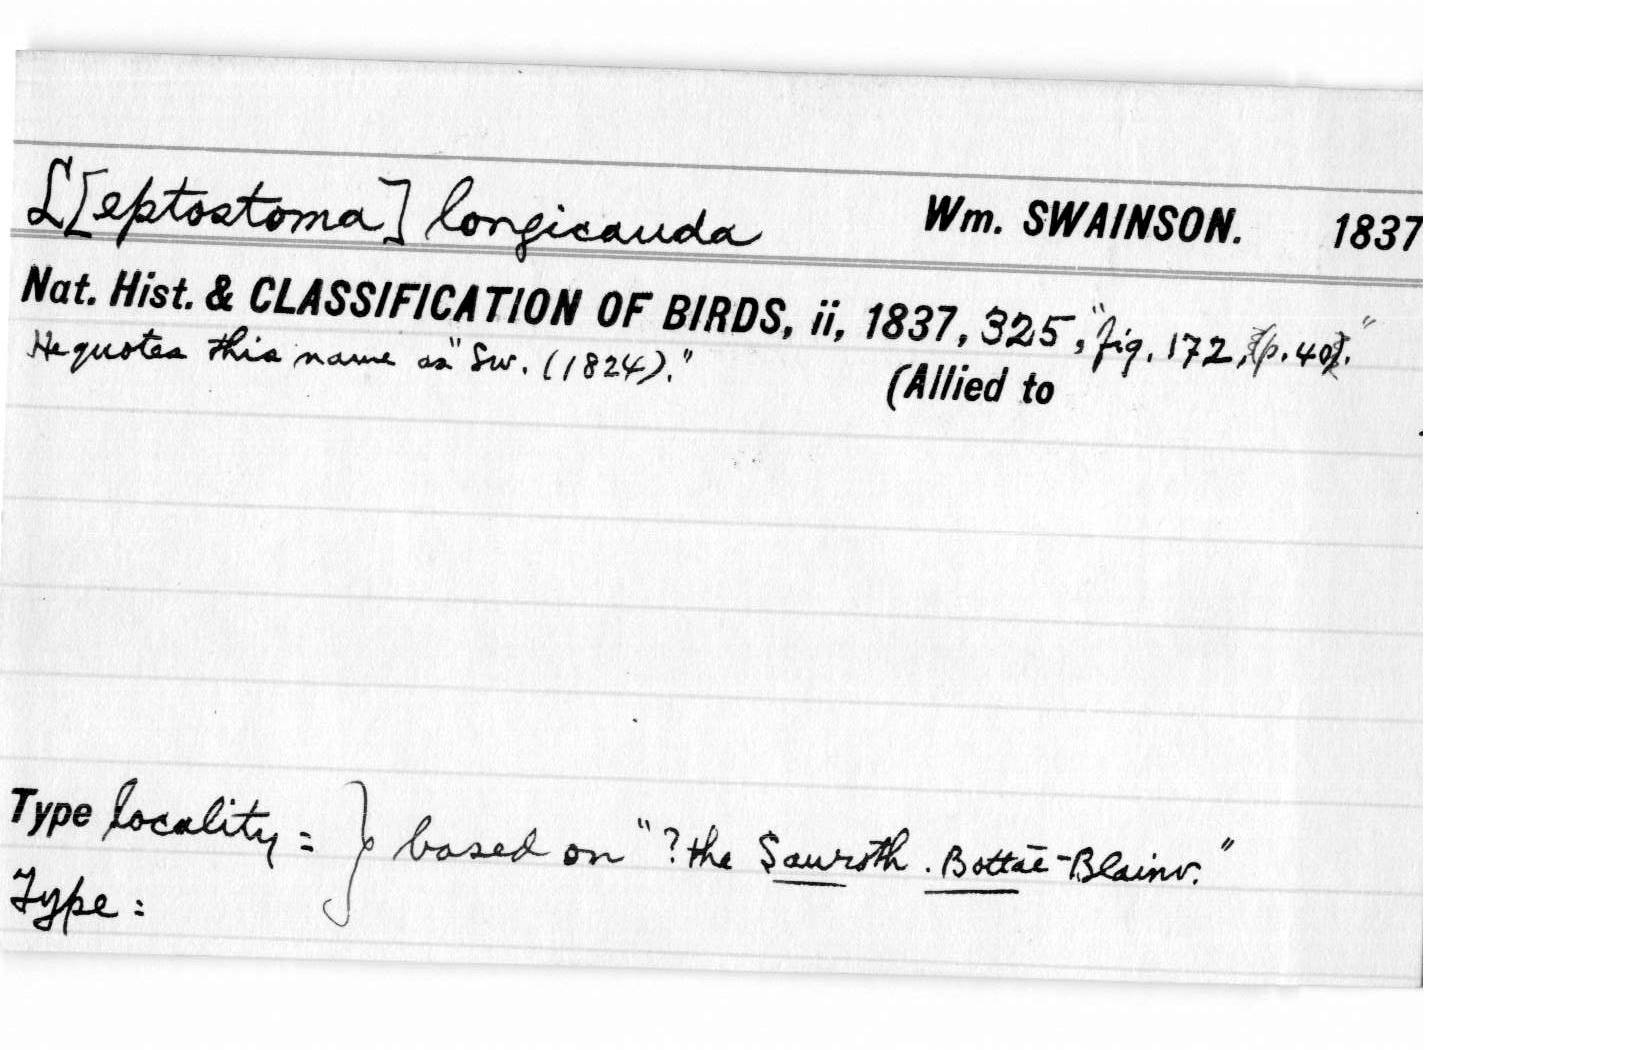 L[eptostoma] longicauda Wm. SWAINSON. 1837
Nat. Hist. & CLASSIFICATION OF BIRDS, ii, 1837, 325, "fig. 172, p. 40."
He quotes this name as "Sw. (1824)."
(Allied to
Type locality = } based on "? the Sauroth. Bottae-Blainv."
Type :